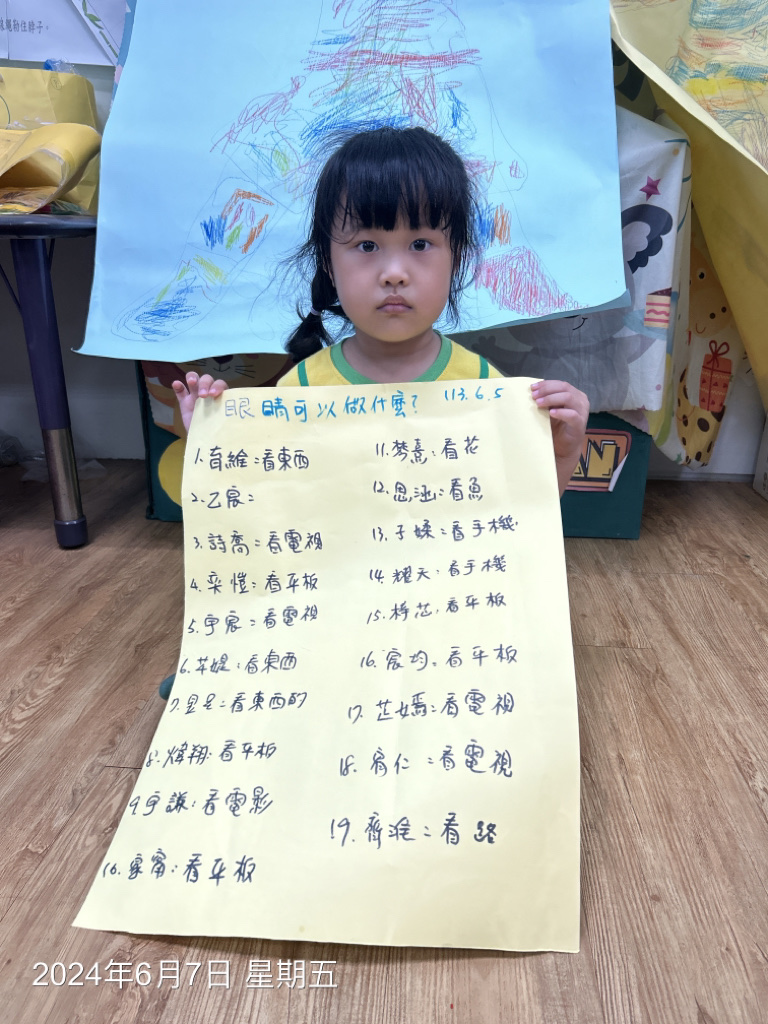 眼睛可以做什麼? 113.6.5
1.育維:看東西
2.乙宸:
3.詩喬:看電視
4.奕愷:看平板
5.宇宸:看電視
6.苹媞:看東西
7.昱:看東西的
8.煒翔:看平板
9.宇謙:看電影
10.家甯:看平板
11.梦熹:看花
12.恩涵:看魚
13.子:看手機
14.耀天:看手機
15.芯:看平板
16.宸均:看平板
17.芷嫣:看電視
18.宥仁:看電視
19.齊:看路
AN
2024年6月7日 星期五